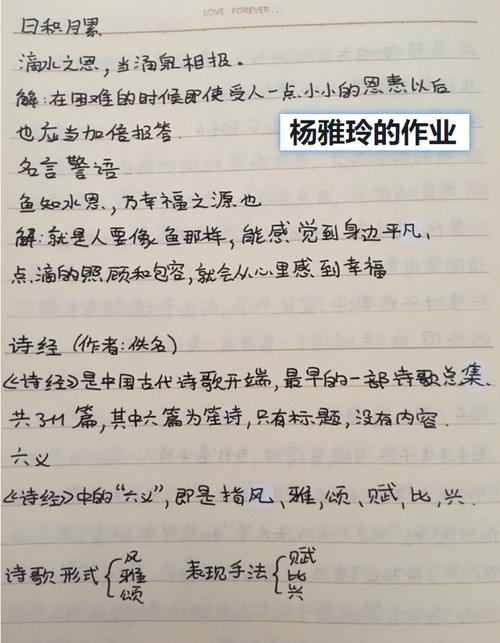 LOVE FOREVER...
日和月累
滴水之恩，当涌泉相报。
解：在困难的时候即使受人一点小小的恩惠以后
也应当加倍报答．
杨雅玲的作业
名言警语
鱼知水恩，乃幸福之源也
解：就是人要像鱼那样，能感觉到身边平凡、
点滴的照顾和包容，就会从心里感到幸福
诗经（作者：佚名）
《诗经》是中国古代诗歌开端，最早的一部诗歌总集．
共311篇，其中六篇为笙诗，只有标题，没有内容．
六义
《诗经》中的“六义”，即是指风、雅，颂、赋，比，兴．
诗歌形式{风 雅 颂 表现手法{赋 比 兴